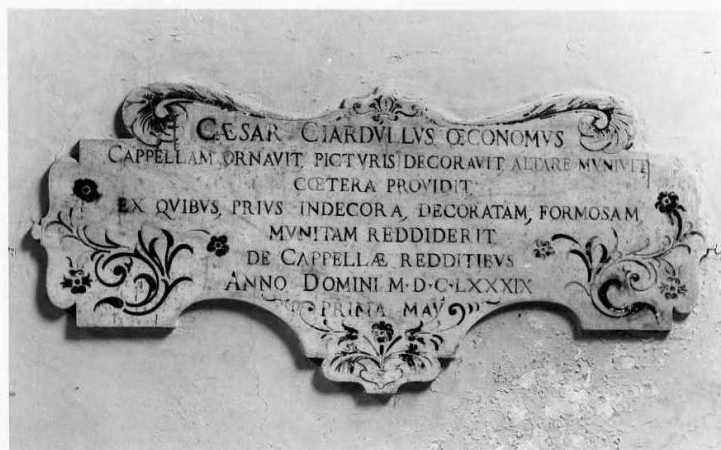 CÆSAR CIARDVLLVS ŒCONOMVS
CAPPELLAM ORNAVIT PICTVRIS DECORAVIT ALTARE MVNIVIT
CŒTERA PROVIDIT
EX QVIBVS, PRIVS INDECORA, DECORATAM, FORMOSAM
MVNITAM REDDIDERIT
DE CAPPELLÆ REDDITIBVS
ANNO DOMINI M·D·C·LXXXIX
PRIMA MAY